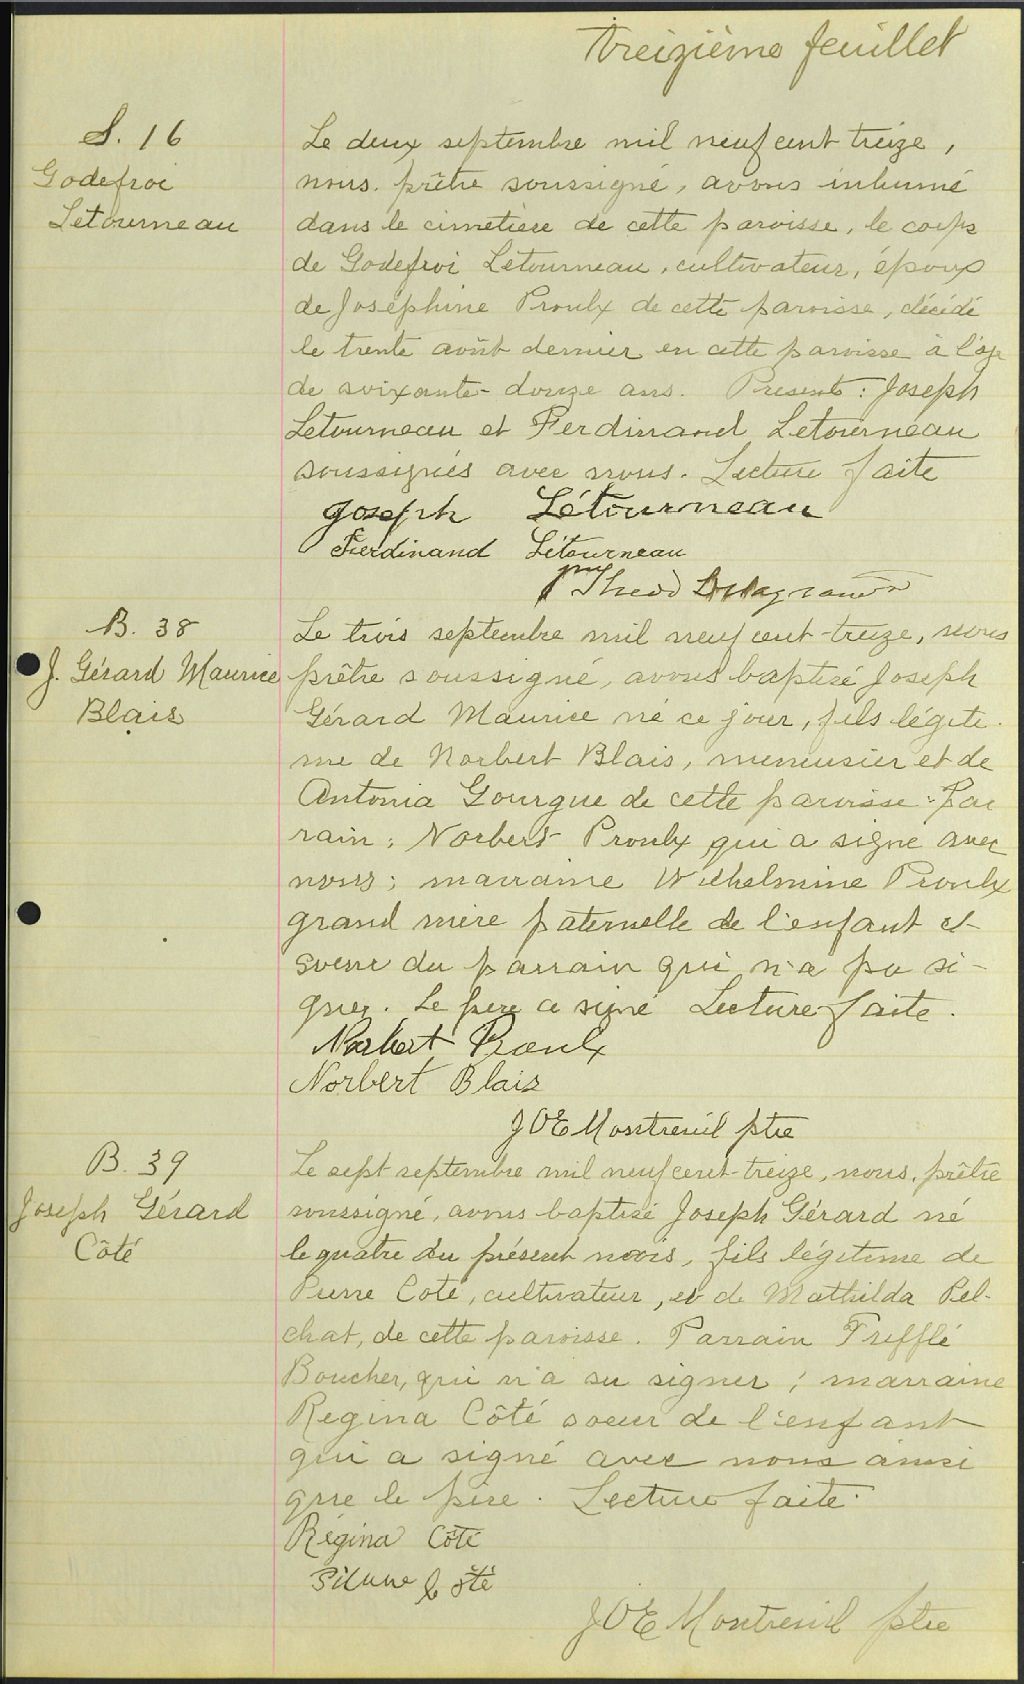 treizième feuillet
S. 16
Godefroi
Letourneau
Le deux septembre mil neuf cent treize,
nous, prêtre soussigné, avons inhumé
dans le cimetière de cette paroisse, le corps
de Godefroi Létourneau, cultivateur, époux
de Joséphine Proulx de cette paroisse, décédé
le trente août dernier en cette paroisse à l'age
de soixante-douze ans. Presents : Joseph
Letourneau et Ferdinand Letourneau
soussignés avec nous. Lecture faite
Joseph Létourneau
Ferdinand Létourneau
Theod
B. 38
J. Gérard Maurice
Blais
Le trois septembre mil neuf cent-treize, nous
prêtre soussigné, avons baptisé Joseph
Gérard Maurice né ce jour, fils légiti-
me de Norbert Blais, menuisier et de
Antonia Gourgue de cette paroisse. Par
rain; Norbert Proulx qui a signe avec
nous; marraine Wilhelmine Proulx
grand mère paternelle de l'enfant et
soeur du parrain qui n'a pu si-
gner. Le pere a signé Lecture faite.
Norbert Proulx
Norbert Blais
JOE Montreuil ptre
B. 39
Joseph Gérard
Côté
Le sept septembre mil neuf cent-treize, nous, prêtre
soussigné, avons baptisé Joseph Gérard né
le quatre du présent mois, fils légitime de
Pierre Coté, cultivateur, et de Mathilda Pel-
chat, de cette paroisse. Parrain Trefflé
Boucher, qui n'a su signer; marraine
Regina Côté soeur de l'enfant
qui a signé avec nous ainsi
que le père. Lecture faite.
Régina Côté
Côté
JOE Montreuil ptre